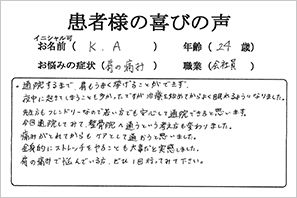 患者様の喜びの声
イニシャル可
お名前( K.A ) 年齢( 24 歳)
お悩みの症状(肩の痛み) 職業(会社員)
・通院するまで、肩もうまく挙げることができず、
夜中に起きてしまうことも多かったですが治療を始めてからよく眠れるようになりました。
先生方もフレンドリーなので若い方でも安心して通院できると思います。
今回通院してみて、整骨院へ通うという考え方も変わりました。
痛みがとれてからもケアとして通おうと思いました。
全身的にストレッチをやることも大事だと実感しました。
肩の痛みで悩んでいる方、ぜひ1回行ってみて下さい。